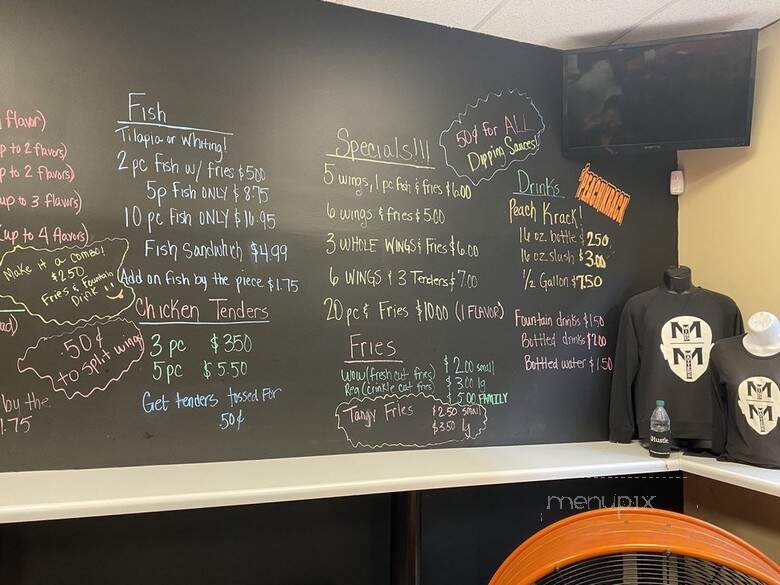 flavor)
up to 2 flavors)
up to 2 flavors)
up to 3 flavors)
(up to 4 flavors)
Make it a combo!
$2.50
Fries & Fountain
Drink
.50¢
to split wings
by the
1.75
Fish
Tilapia or Whiting!
2 pc Fish w/ fries $5.00
5p Fish ONLY $8.75
10 pc Fish ONLY $16.95
Fish Sandwich $4.99
Add on fish by the piece $1.75
Chicken Tenders
3 pc $3.50
5pc $5.50
Get tenders tossed for
.50¢
Specials!!!
5 wings, 1 pc fish & fries $6.00
6 wings & fries $5.00
3 WHOLE WINGS & Fries $6.00
6 WINGS & 3 Tenders $7.00
20 pc & Fries $10.00 (1 FLAVOR)
Fries
Wow (fresh cut fries) $2.00 small
Reg (crinkle cut fries $3.00 lg
$5.00 FAMILY
Tangy Fries $2.50 small
$3.50 lg
50¢ for ALL
Dipping Sauces!
Drinks
Peachkrack
Peach Krack!
16 oz. bottle $2.50
16 oz. slush $3.00
1/2 Gallon $7.50
Fountain drinks $1.50
Bottled drinks $2.00
Bottled water $1.50
M
M
M
M
Hustle
menupix